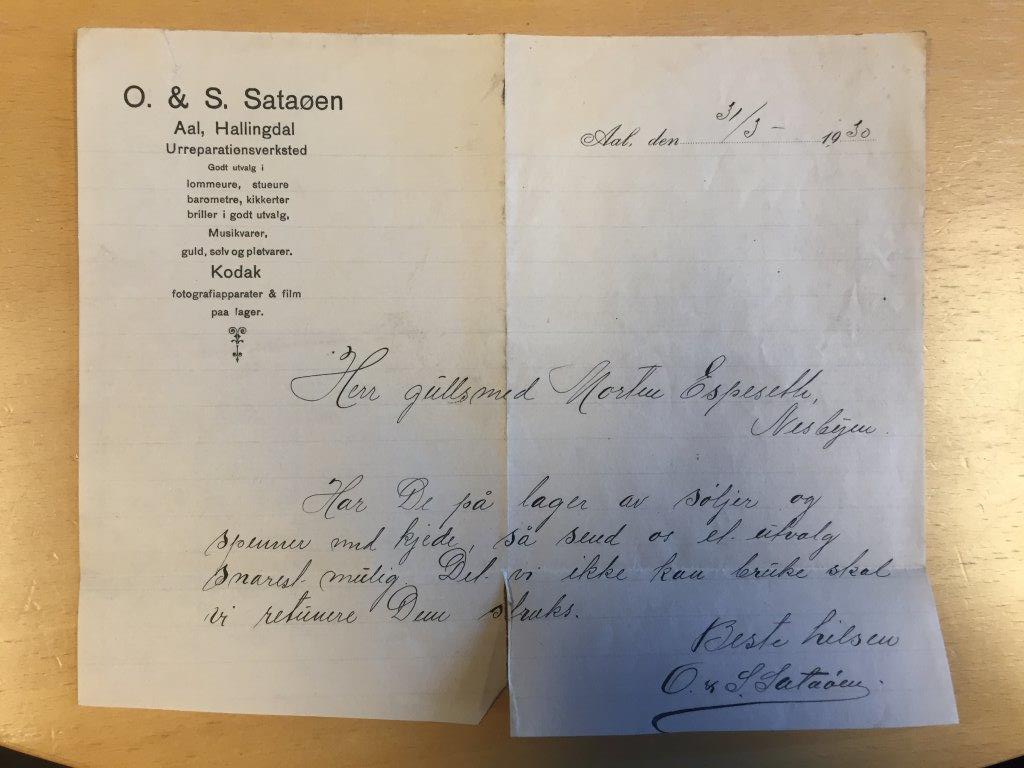 O. & S. Sataøen
Aal, Hallingdal
Urreparationsverksted
Godt utvalg i
lommeure, stueure
barometre, kikkerter
briller i godt utvalg,
Musikvarer,
guld, sølv og pletvarer.
Kodak
fotografiapparater & film
paa lager.
Aal, den 31/3 - 1930
Herr gullsmed Morten Espeseth,
Nesbyen.
Har De på lager av søljer og
spenner med kjede, så send os et utvalg
snarest mulig. Det vi ikke kan bruke skal
vi retunere Dem straks.
Beste hilsen
O. & S. Sataøen.